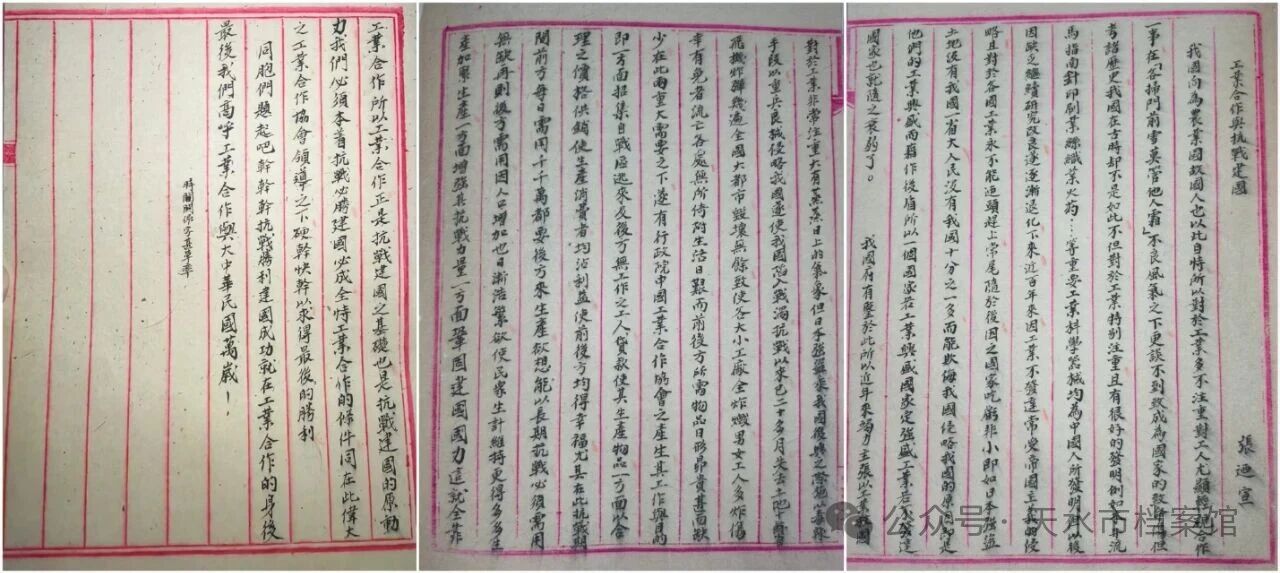 工業合作與抗戰建國
張廸宣
我國向為農業國故國人也以此自恃所以對於工業多不注重對工人尤顯合作
一事在「各掃門前雪莫管他人霜」不良風氣之下更談不到致成為國家的致但
考諸歷史我國在古時却不是如此不但對於工業特别注重且有很好的發明例如流
馬指南針印刷業絲織業火药…等重要工業科學器械均為中國人所發明但以後
因缺乏繼續研究改良遂逐漸退化下來近百年來因工業不發達常受帝國主義的侵
略且對於各國工業永不能迎頭趕上常尾隨於後因之國家吃虧非小即如日本強盜
土地沒有我國一省大人民沒有我國十分之一多而能欺侮我國侵略我國的原因是
他們的工業興盛而藉作後盾所以一個國家若工業興盛國家定強盛工業若不發達
國家也就隨之衰弱了。 我國府有鑒於此所以近年來竭力主張以工業救國
對於工業非常注重大有蒸蒸日上的氣象但日本強盜乘我國復興之際施以毒辣
手段以重兵良械侵略我國遂使我國陷入戰渦抗戰以來已二十多月失去土地十餘省
飛機炸彈幾遍全國大都市毀壞無餘致使各大小工廠全炸燬男女工人多炸傷
幸有免者流亡各處無所倚附生活日艱而前後方所需物品日形昂貴甚而缺
少在此兩重大需要之下遂有行政院中國工業合作協會之產生其工作與目的
即一方面招集自戰區逃來及後方無工作之工人貸款使其生產物品一方面以合
理之價格供銷使生產消費者均沾利益使前後方均得幸福尤其在此抗戰期
間前方每日需用千千萬都要後方來生產欲想能以長期抗戰必須需用
無缺再則後方需用因人口增加也日漸浩繁欲使民衆生計維持更得多多生
產加緊生產一方面增強其抗戰力量一方面鞏固建國國力這就全靠
工業合作所以工業合作正是抗戰建國之基礎也是抗戰建國的原動
力我們必須本着抗戰必勝建國必成全恃工業合作的條件同在此偉大
之工業合作協會領導之下硬幹快幹以求得最後的勝利
同胞們起吧幹幹幹抗戰勝利建國成功就在工業合作的身後
最後我們高呼工業合作與大中華民國萬歲！
時間關係字甚草率
公众号·天水市档案馆